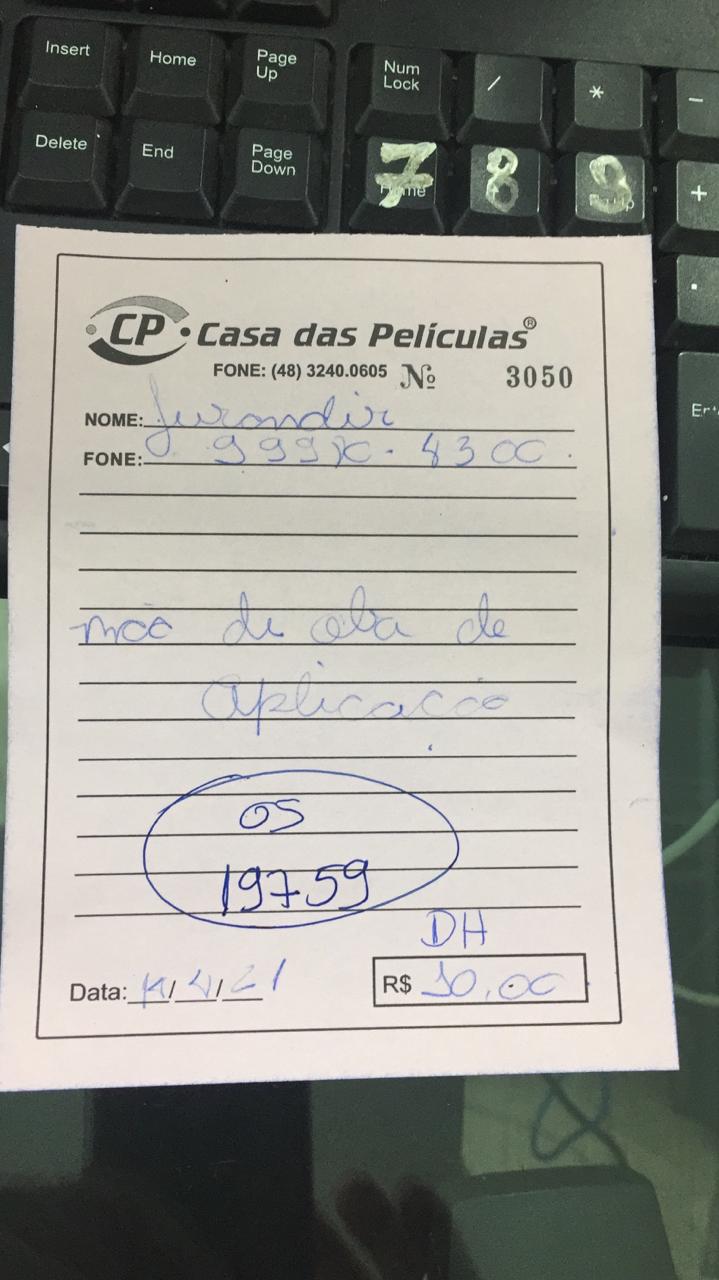 Insert Home Page Up Num Lock / * -
Delete End Page Down 7 8 9 +
Home
CP Casa das Películas®
FONE: (48) 3240.0605 Nº 3050
NOME: Jurandir
FONE:
mão de oba de
aplicação
OS
19759
DH
Data: / 4 / 21 R$ 10,00